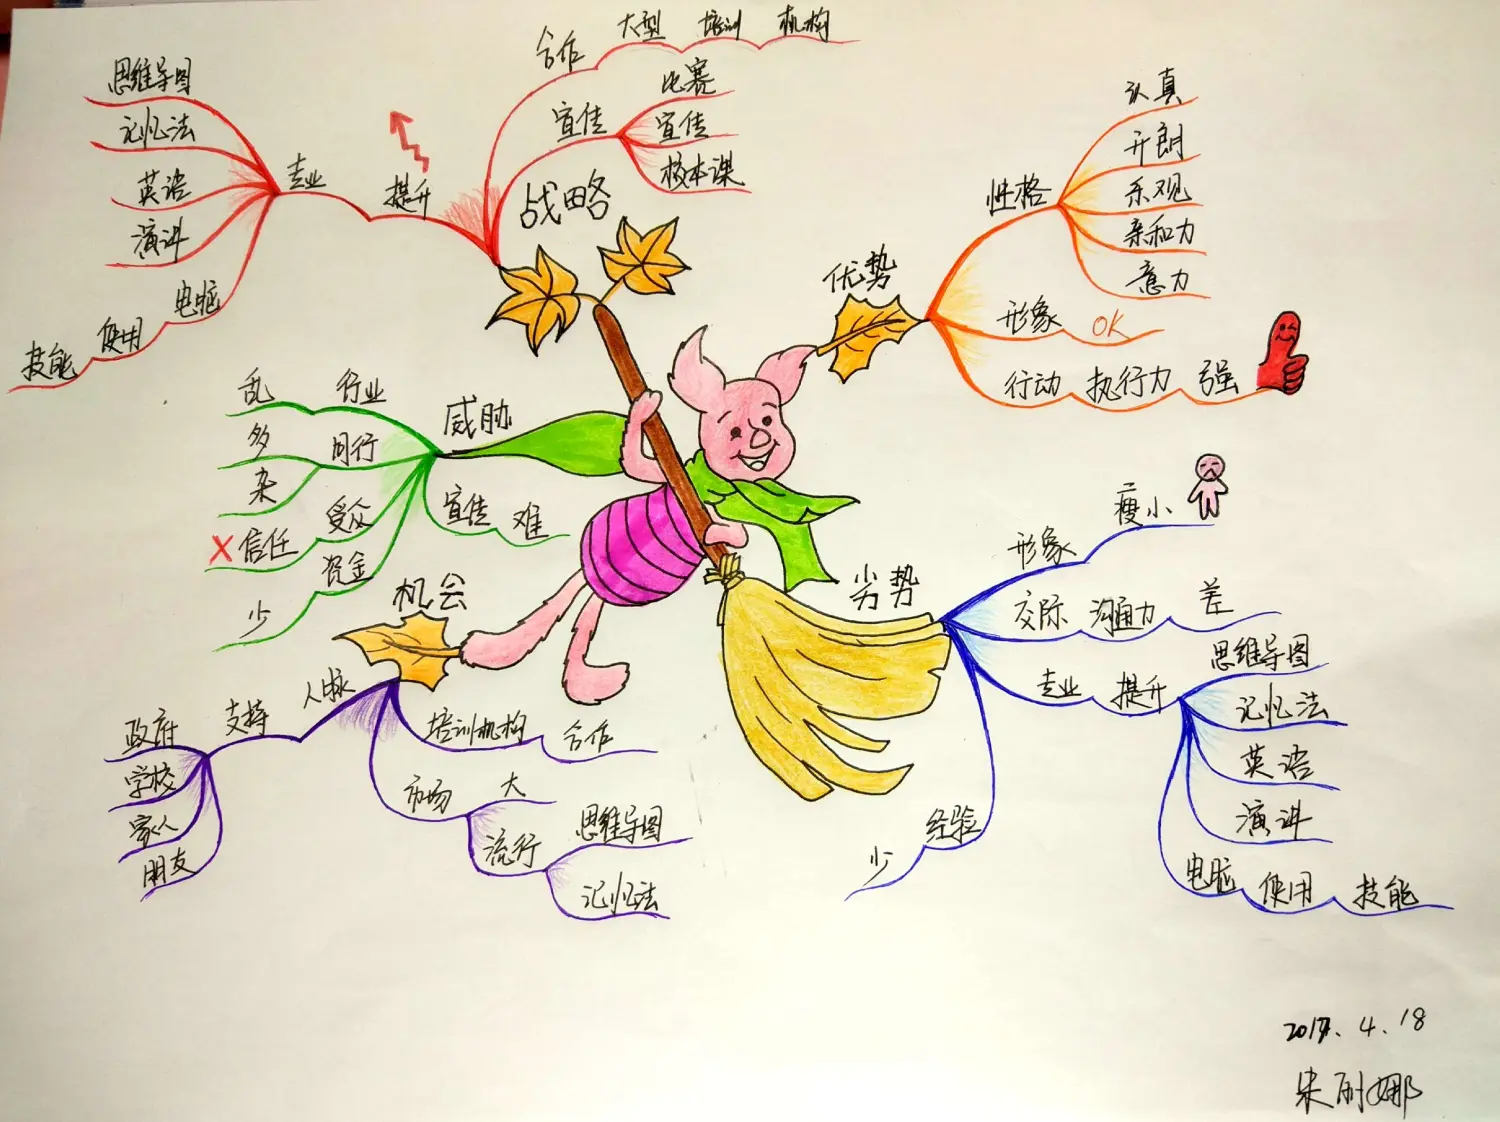 优势
性格
认真
开朗
乐观
亲和力
意力
形象 OK
行动 执行力 强
劣势
形象 瘦小
交际 沟通力 差
专业 提升
思维导图
记忆法
英语
演讲
电脑 使用 技能
经验 少
机会
人脉 支持
政府
学校
家人
朋友
培训机构 合作
市场 大
流行
思维导图
记忆法
威胁
行业 乱
同行 多
杂
受众 信任 X
资金 少
宣传 难
战略
提升 专业
思维导图
记忆法
英语
演讲
电脑 使用 技能
合作 大型 培训 机构
宣传
比赛
宣传
校本课
2017.4.18
朱耐娜